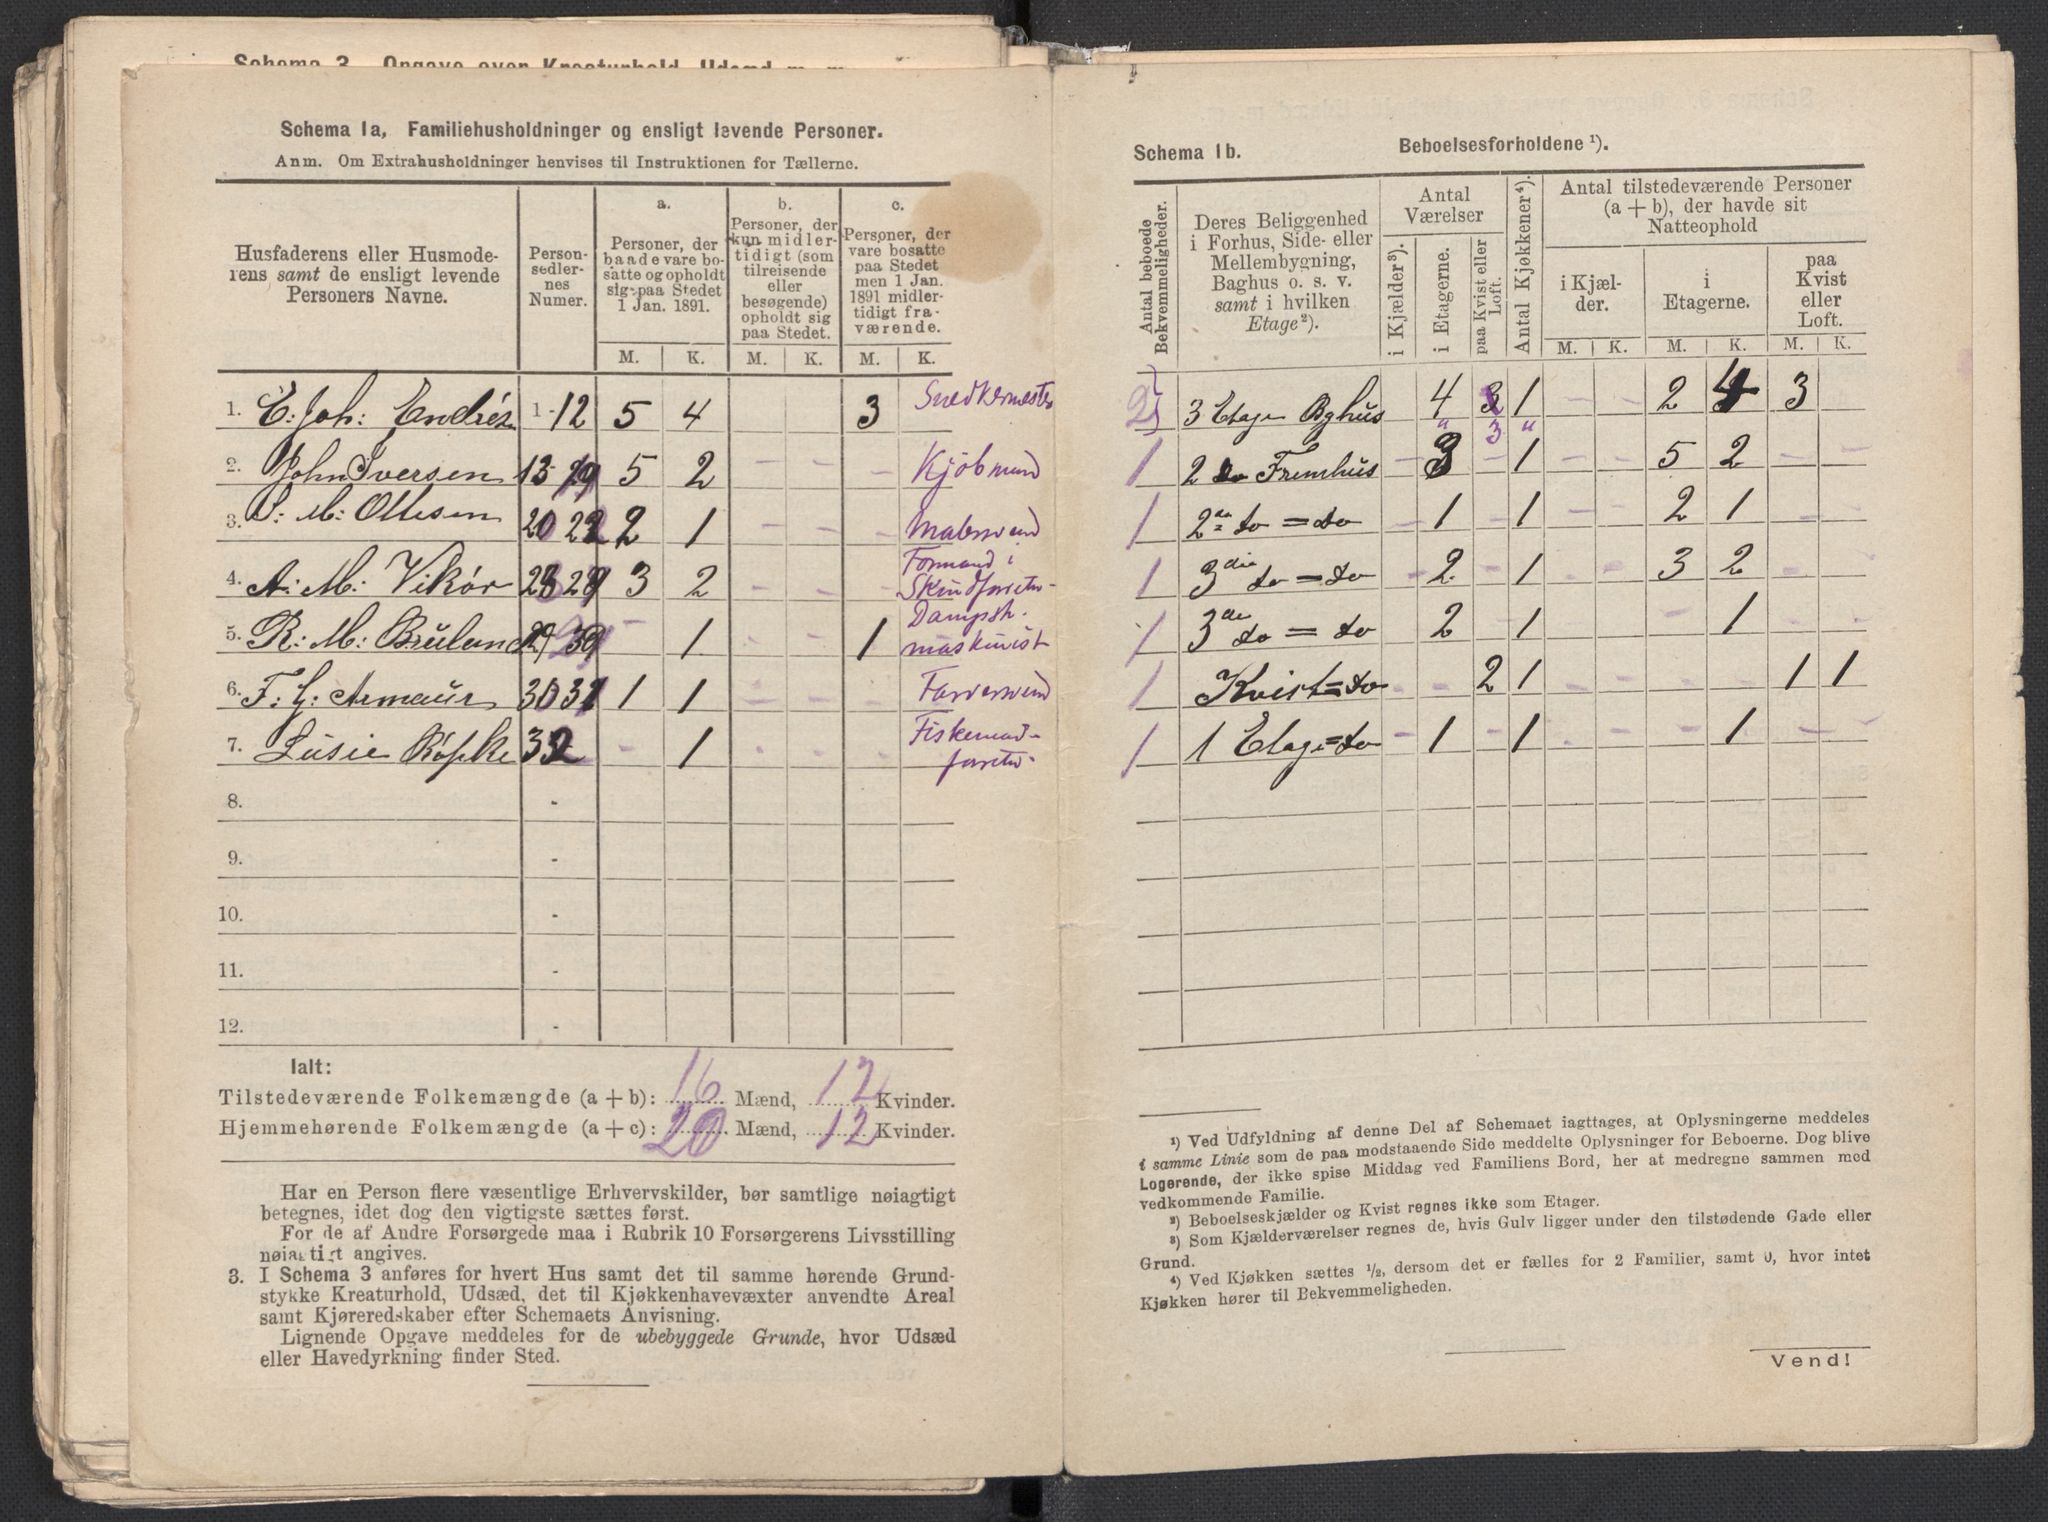 Schema 3. Opgave over Kreaturhold, Udsæd m. m.
Schema 1a, Familiehusholdninger og ensligt levende Personer.
Anm. Om Extrahusholdninger henvises til Instruktionen for Tællerne.
Husfaderens eller Husmoderens samt de ensligt levende Personers Navne.
Personsedlernes Numer.
a.
Personer, der baade vare bosatte og opholdt sig paa Stedet 1 Jan. 1891.
b.
Personer, der kun midlertidigt (som tilreisende eller besøgende) opholdt sig paa Stedet.
c.
Personer, der vare bosatte paa Stedet men 1 Jan. 1891 midlertidigt fraværende.
M. K. M. K. M. K.
1. E. Joh: Endrés 1-12 5 4 3 Snedkermester
2. John Iversen 13 19 5 2 - - - Kjøbmand
3. S: M: Ottesen 20 22 2 1 - - - Malersvend
4. A: M: Vikör 28 3 2 - - - Formand i Skindforretn-
5. R: M: Bruland 29 - 1 1 Dampsk. maskinist
6. F: G: Armaur 30 31 1 1 - - - Farversvend
7. Lusie Röpke 32 - 1 - - - Fiskemadforretn-
8. -
9. -
10. -
11. -
12. -
Ialt:
Tilstedeværende Folkemængde (a + b): 16 Mænd, 12 Kvinder.
Hjemmehørende Folkemængde (a + c): 20 Mænd, 12 Kvinder.
Har en Person flere væsentlige Erhvervskilder, bør samtlige nøiagtigt
betegnes, idet dog den vigtigste sættes først.
For de af Andre Forsørgede maa i Rubrik 10 Forsørgerens Livsstilling
nøiagtigt angives.
3. I Schema 3 anføres for hvert Hus samt det til samme hørende Grund-
stykke Kreaturhold, Udsæd, det til Kjøkkenhavevæxter anvendte Areal
samt Kjøreredskaber efter Schemaets Anvisning.
Lignende Opgave meddeles for de ubebyggede Grunde, hvor Udsæd
eller Havedyrkning finder Sted.
Schema 1b. Beboelsesforholdene ¹).
Antal beboede Bekvemmeligheder.
Deres Beliggenhed i Forhus, Side- eller Mellembygning, Baghus o. s. v. samt i hvilken Etage²).
Antal Værelser
i Kjælder³).
i Etagerne.
paa Kvist eller Loft.
Antal Kjøkkener⁴).
Antal tilstedeværende Personer (a + b), der havde sit Natteophold
i Kjælder.
i Etagerne.
paa Kvist eller Loft.
M. K. M. K. M. K.
2 3 Etage Bghus 4 1 - - 2 4 3
1 2 do Fremhus - 3 - 1 - - 5 2 - -
1 2den do = do - 1 - 1 - - 2 1 - -
1 3die do = do - 2 - 1 - - 3 2 - -
1 3de do = do 2 1 1
1 Kvist = do - - 2 1 - - - - 1 1
1 1 Etage = do - 1 - 1 - - - 1 - -
¹) Ved Udfyldning af denne Del af Schemaet iagttages, at Oplysningerne meddeles
i samme Linie som de paa modstaaende Side meddelte Oplysninger for Beboerne. Dog blive
Logerende, der ikke spise Middag ved Familiens Bord, her at medregne sammen med
vedkommende Familie.
²) Beboelseskjælder og Kvist regnes ikke som Etager.
³) Som Kjælderværelser regnes de, hvis Gulv ligger under den tilstødende Gade eller
Grund.
⁴) Ved Kjøkken sættes ½, dersom det er fælles for 2 Familier, samt 0, hvor intet
Kjøkken hører til Bekvemmeligheden.
Vend!